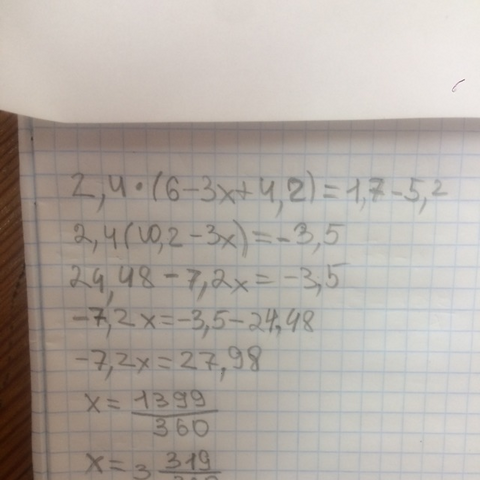 2,4·(6-3x+4,2)=1,7-5,2
2,4(10,2-3x)=-3,5
24,48-7,2x=-3,5
-7,2x=-3,5-24,48
-7,2x=27,98
x=1399/360
x=3 319/